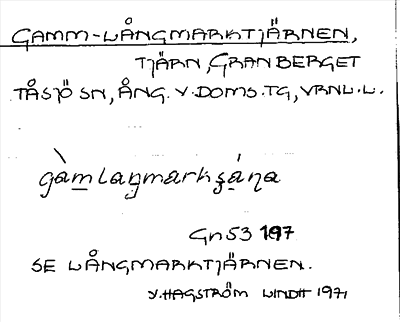 GAMM-LÅNGMARKTJÄRNEN,
TJÄRN, GRANBERGET
TÅSJÖ SN, ÅNG. V. DOMS. TG, VRNL. L.
Gn 53 197
SE LÅNGMARKTJÄRNEN.
V. HAGSTRÖM LINDH 1971